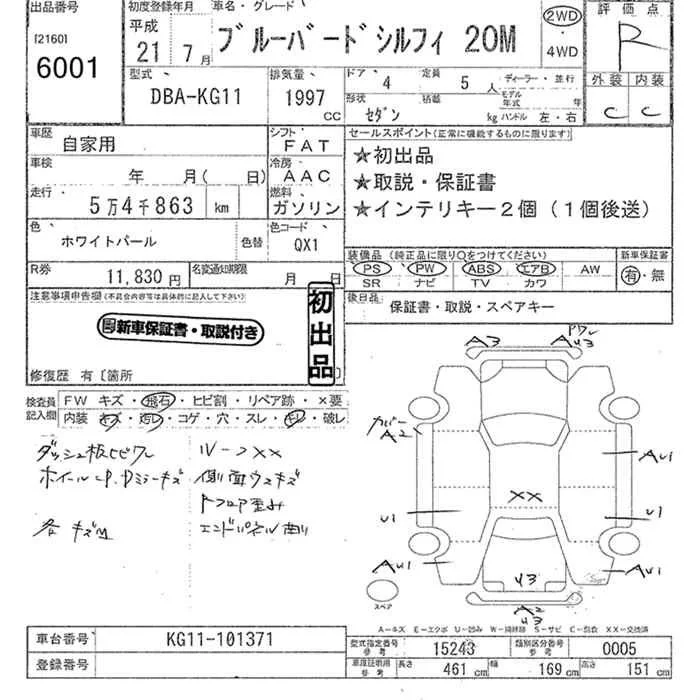 出品番号
[2160]
6001
初度登録年月
平成
21 7月
車名・グレード
ブルーバードシルフィ 20M
2WD
・
4WD
評価点
R
外装 内装
C C
型式
DBA-KG11
排気量
1997
CC
ドア 4
定員 5人
ディーラー・並行
モデル年式 年
形状 セダン
積載 kg
ハンドル 左・右
車歴
自家用
シフト
FAT
車検
年 月(日)
冷房
AAC
走行
5万4千863 km
燃料
ガソリン
色
ホワイトパール
色替
色コード
QX1
R券
11,830円
名変通知期限
月 日
セールスポイント(正常に機能するものに限ります)
★初出品
★取説・保証書
★インテリキー2個(1個後送)
装備品(純正品に限り○をつけてください)
新車保証書
PS PW ABS エアB AW
SR ナビ TV カワ
有・無
後日品
保証書・取説・スペアキー
注意事項申告欄(不具合内容等は具体的に記入して下さい)
新車保証書・取説付き
初出品
修復歴 有〔箇所
検査員記入欄
FW キズ・飛石・ヒビ割・リペア跡・×要
内装 キズ・汚レ・コゲ・穴・スレ・キレ・破レ
ダッシュ板ヒビワレ
ルーフXX
側面ウスキズ
フロア歪み
エンドパネル曲り
各キズ凹
A3
ワレ
A43
カバー
A2
AU1
XX
U1
U1
AU1
AU1
U3
A2
U3
スペア
A-キズ E-エクボ U-凹み W-補修跡 S-サビ C-腐食 XX-交換済
車台番号
KG11-101371
登録番号
型式指定番号
参考
15243
類別区分番号
参考
0005
車庫証明用
参考
長さ 461cm
幅 169cm
高さ 151cm